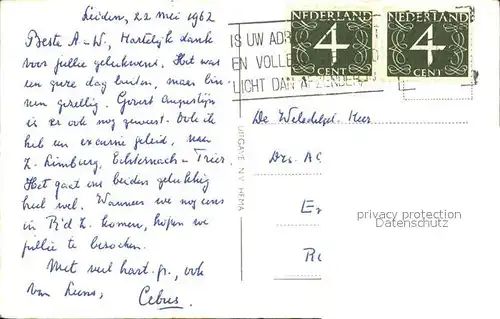 Leiden, 22 mei 1962
Beste A-W., Hartelijk dank
voor jullie gelukwens. Het was
een gure dag buiten, maar bin-
nen gezellig. Govert Augustijn
is er ook nog geweest. Ook ik
heb een excursie geleid, naar
Z. Limburg, Echternach - Trier.
Het gaat ons beiden gelukkig
heel wel. Wanneer we nog eens
in R'd Z. komen, hopen we
jullie te bezoeken.
Met veel hart. gr., ook
van Luus,
Cebus.
IS UW ADR
EN VOLLE
LICHT DAN AFZENDER
NEDERLAND
4
CENT
NEDERLAND
4
CENT
UITGAVE N.V. HEMA
De Weledelgel. Heer
Drs. A
privacy protection
VINTAGE-POSTCARDS.eu